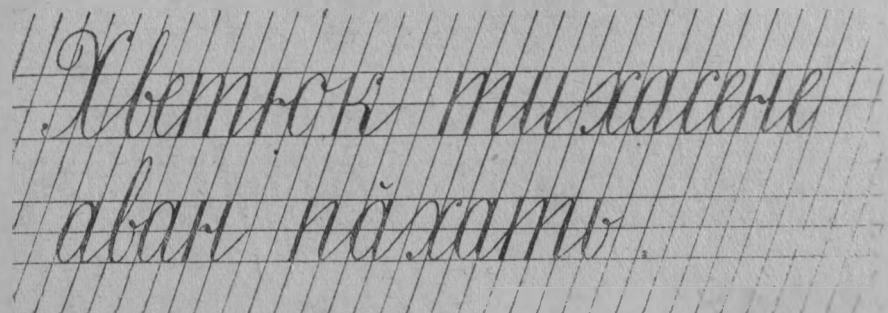 Хветюк тихасене
аван пăхать.